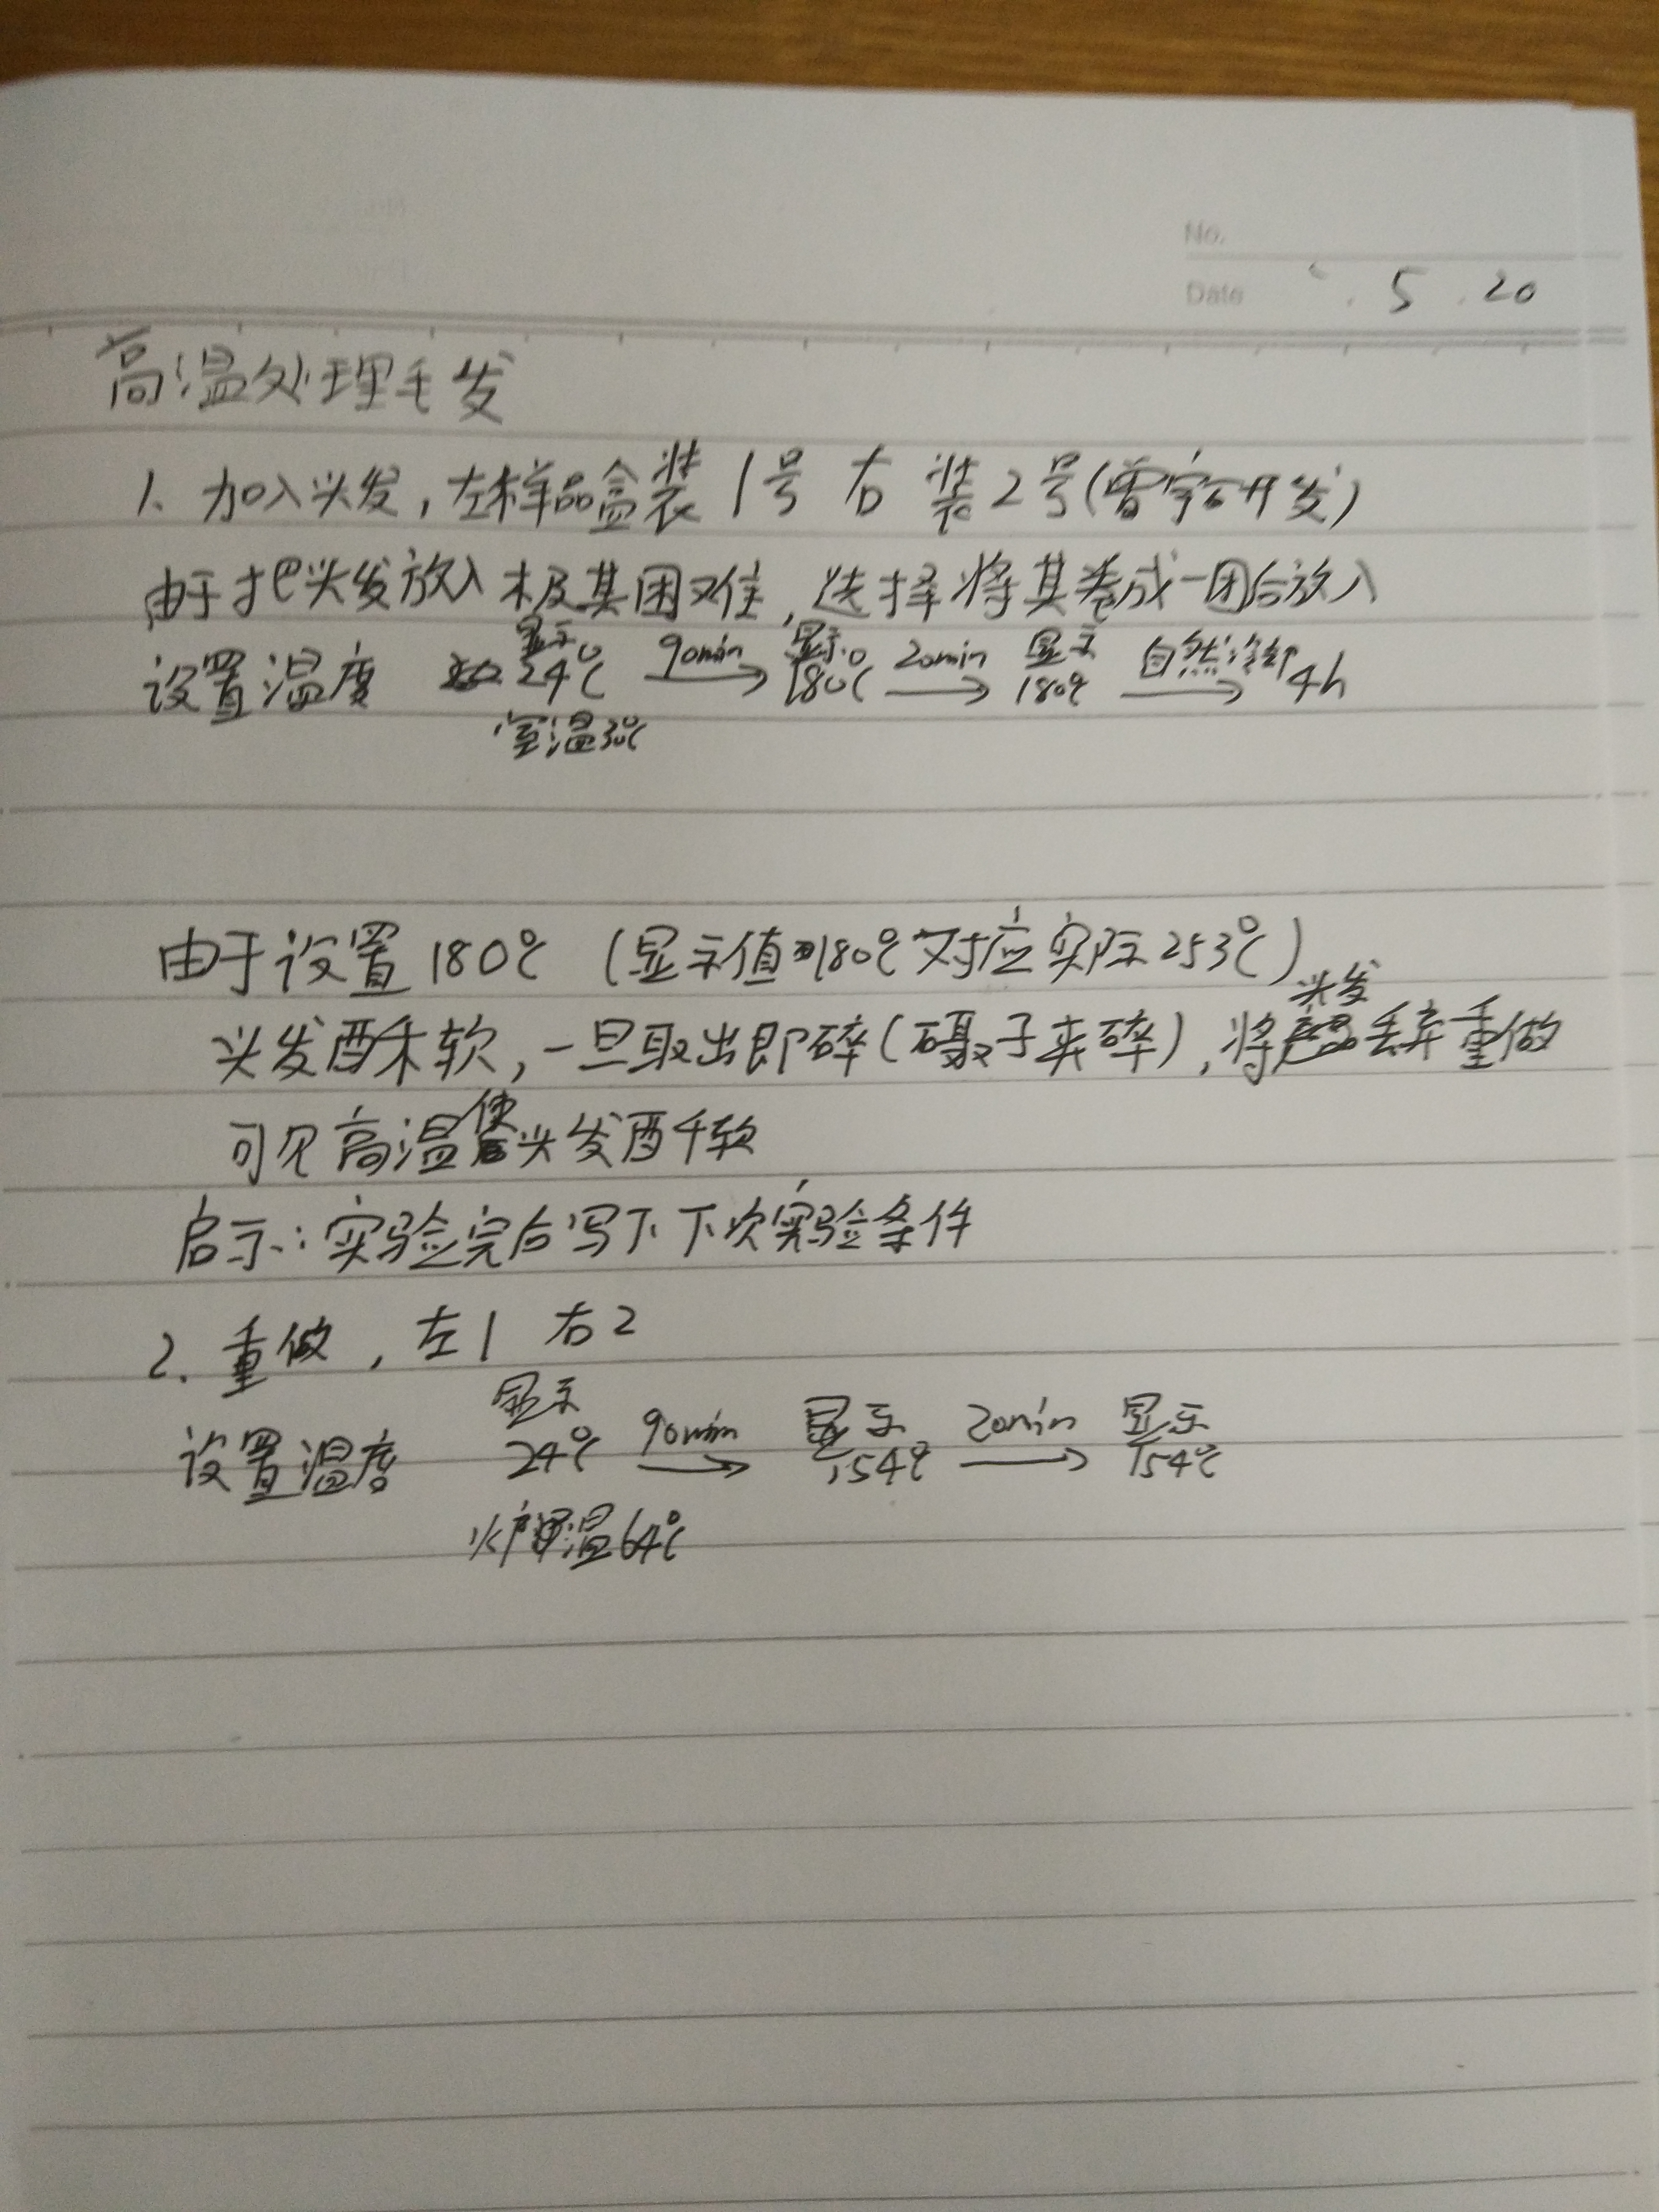 No.
Date . 5 . 20
高温处理毛发
1. 加入头发,左样品盒装1号 右 装2号(曾宇研发)
由于把头发放入极其困难,选择将其卷成一团后放入
显示 90min 显示 20min 显示 自然冷却
设置温度 24℃ → 180℃ → 180℃ → 4h
室温30℃
由于设置180℃ (显示值180℃对应实际253℃)
头发
头发酥软,一旦取出即碎(镊子夹碎),将丢弃重做
使
可见高温头发酥软
启示:实验完后写下下次实验条件
2. 重做,左1 右2
显示 90min 显示 20min 显示
设置温度 24℃ → 154℃ → 154℃
炉温64℃